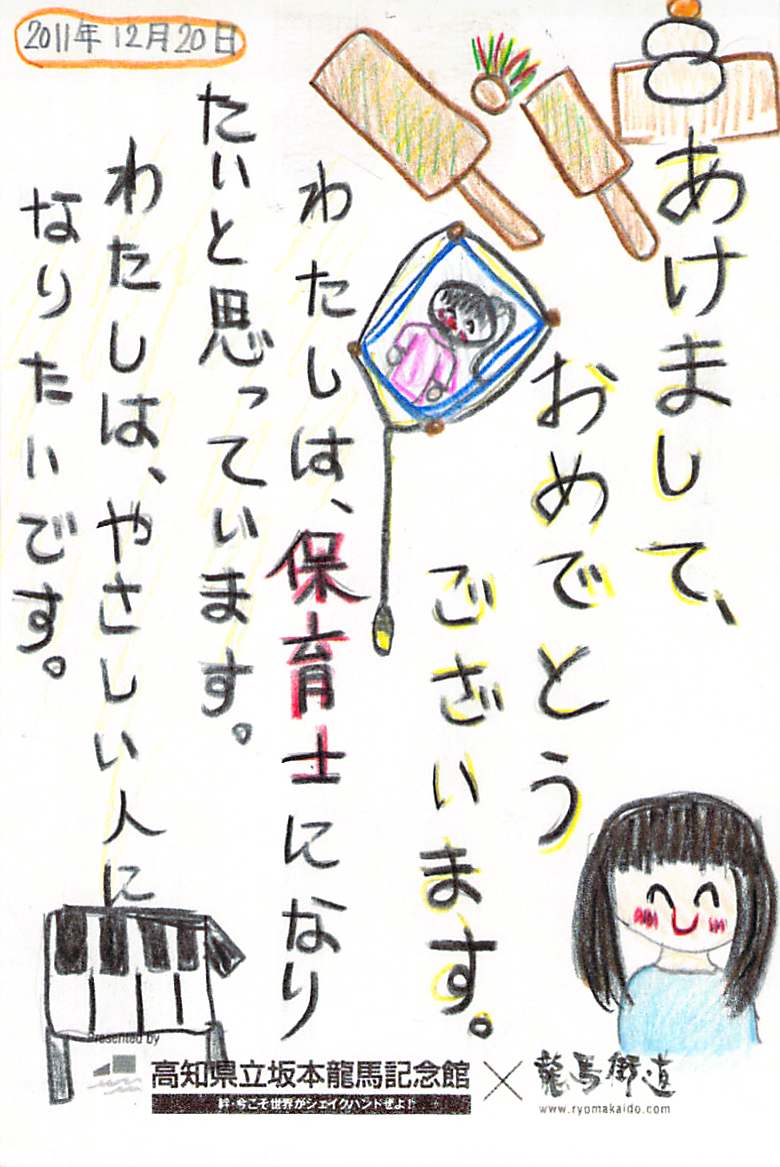 2011年12月20日
あけまして、
おめでとう
ございます。
わたしは、保育士になり
たいと思っています。
わたしは、やさしい人に
なりたいです。
Presented by
高知県立坂本龍馬記念館
絆・今こそ世界がシェイクハンドぜよ!
×
龍馬街道
www.ryomakaido.com